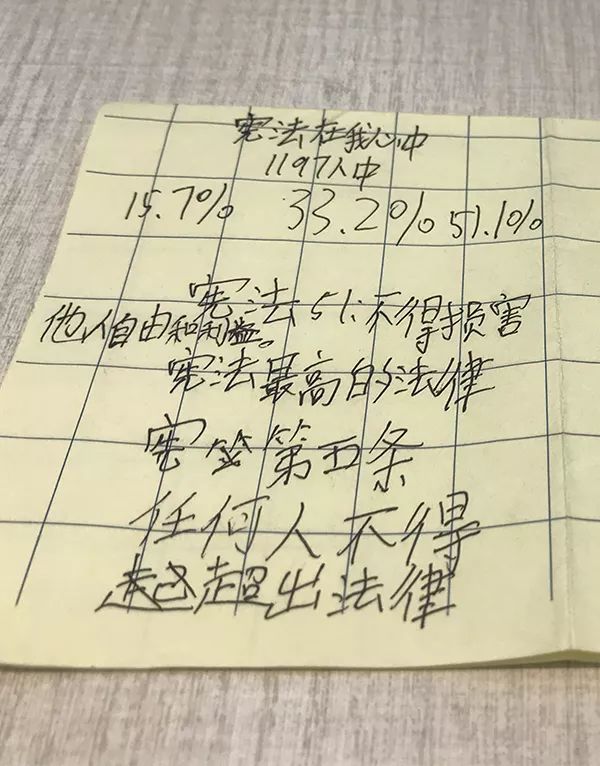 宪法在我心中
1197人中
15.7% 33.2% 51.1%
宪法51:不得损害
他人自由和利益。
宪法最高的法律
宪 第五条
任何人不得
越超出法律